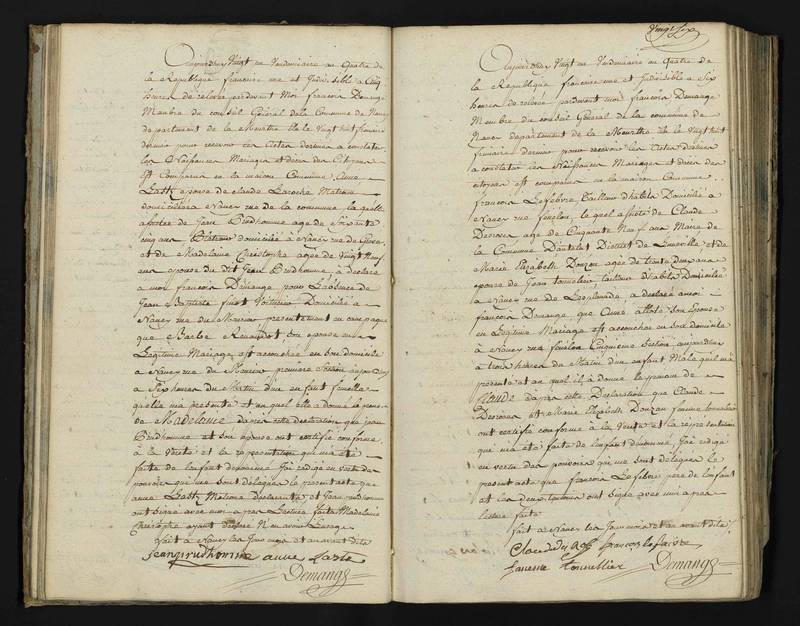 Aujourdhuy Vingt un Vendemiaire an Quatre de
la Republique françoise une et Indivisible a Cinq
heures de relevée pardevant Moi françois Demange
Membre du conseil Général de la Commune de Nancy
departement de la Meurthe élu le Vingt huit frimaire
dernier pour recevoir les Actes destinés a constater
les Naissances Mariages et décès des Citoyens
Est Comparue en la maison Commune Anne
Lasth épouse de Claude Laroche Matrone
domiciliée a Nancy rue de la commune, laquelle
assistée de Jean Prudhomme age de Soixante
cinq ans domicilié à Nancy rue de Grève
et de Madelaine Christophe agée de Vingt Neuf
ans epouse du dit Jean Prudhomme, a déclaré
a moi françois Demange pour L'absence de
Jean Baptiste Voiturier Domicilié a
Nancy rue du Moulin presentement en campagne
que Barbe Renaudot, Son epouse en
Légitime Mariage est accouchée en son domicile
a Nancy rue du premiere Section aujourdhuy
a Six heures du Matin d'un enfant femelle
qu'elle m'a presenté et au quel elle a donné le prenom
de Madelaine d'apres cette declaration que Jean
Prudhomme et Son epouse ont certifié conforme
à la Verité et la representation qui m'a été
faite de l'enfant denommé J'ai redigé en vertu des
pouvoirs qui me sont délégués le present acte que
anne Lasth Matrone declarante et Jean prudhomme
ont Signé avec moi apres Lecture faite Madelaine
Christophe ayant declaré N'en avoir L'usage
fait a Nancy les Jour mois et an avant dits
jean prudhomme anne Laste
Demange
Vingt Six
Aujourdhuy Vingt un Vendemiaire an Quatre de
la Republique françoise une et Indivisible a Six
heures de relevée pardevant moi françois Demange
Membre du conseil Général de la commune de
Nancy departement de la Meurthe élu le Vingt huit
frimaire dernier pour recevoir les Actes destinés
a constater les Naissances Mariages et décès des
citoyens est comparu en la maison Commune
françois Lefebvre Tailleur d'habits Domicilié à
Nancy rue fénélon, le quel assisté de Claude
Desrozes age de Cinquante Neuf ans Maire de
la Commune District de Luneville et de
Marie Elizabeth Douzan agée de trente deux ans
epouse de Jean tonnelier tailleur d'habits Domiciliée
a Nancy rue de L'esplanade a declaré a moi
françois Demange que Anne Son Epouse
en Légitime Mariage est accouchée en son domicile
à Nancy rue fénélon Cinquieme Section, aujourdhuy
a trois heures du Matin d'un enfant Male qu'il m'a
presenté et au quel il a donné le prenom de
Claude d'apres cette Declaration que Claude
Desrozes et Marie Elizabeth Douzan femme tonnelier
ont certifié conforme à la Verité et la representation
qui m'a été faite de L'enfant denommé, J'ai redigé
en vertu des pouvoirs qui me sont délégués le
present acte que françois Lefebvre pere de L'enfant
et les deux témoins ont Signé avec moi apres
Lecture faite
fait a Nancy les Jour mois et an avant dits
Claude françois lefaivre
Tonnellier
Demange